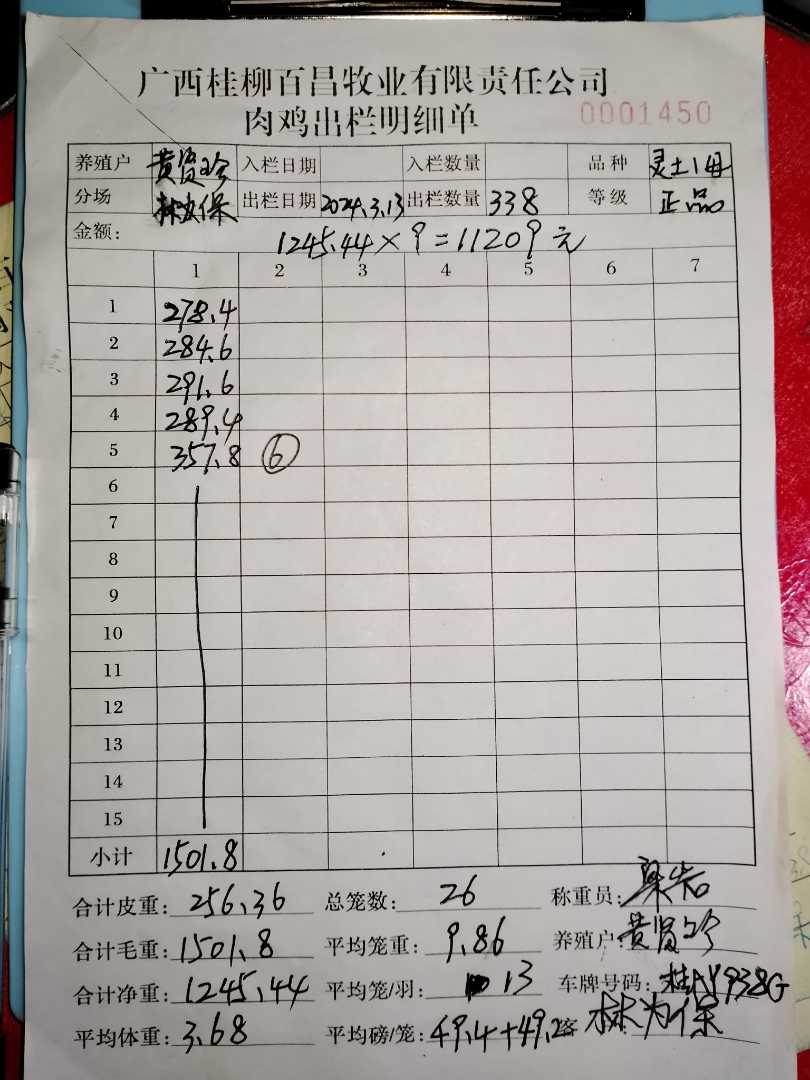 广西桂柳百昌牧业有限责任公司
肉鸡出栏明细单
0001450
养殖户 黄贤珍 入栏日期 入栏数量 品种 灵土1母
分场 林为保 出栏日期 2024.3.13 出栏数量 338 等级 正品
金额: 1245.44×9=11209元
1 2 3 4 5 6 7
1 278.4
2 284.6
3 291.6
4 289.4
5 357.8 ⑥
6
7
8
9
10
11
12
13
14
15
小计 1501.8
合计皮重: 256.36 总笼数: 26 称重员:
合计毛重: 1501.8 平均笼重: 9.86 养殖户: 黄贤珍
合计净重: 1245.44 平均笼/羽: 13 车牌号码: 桂AY938G
平均体重: 3.68 平均磅/笼: 49.4+49.2 林为保